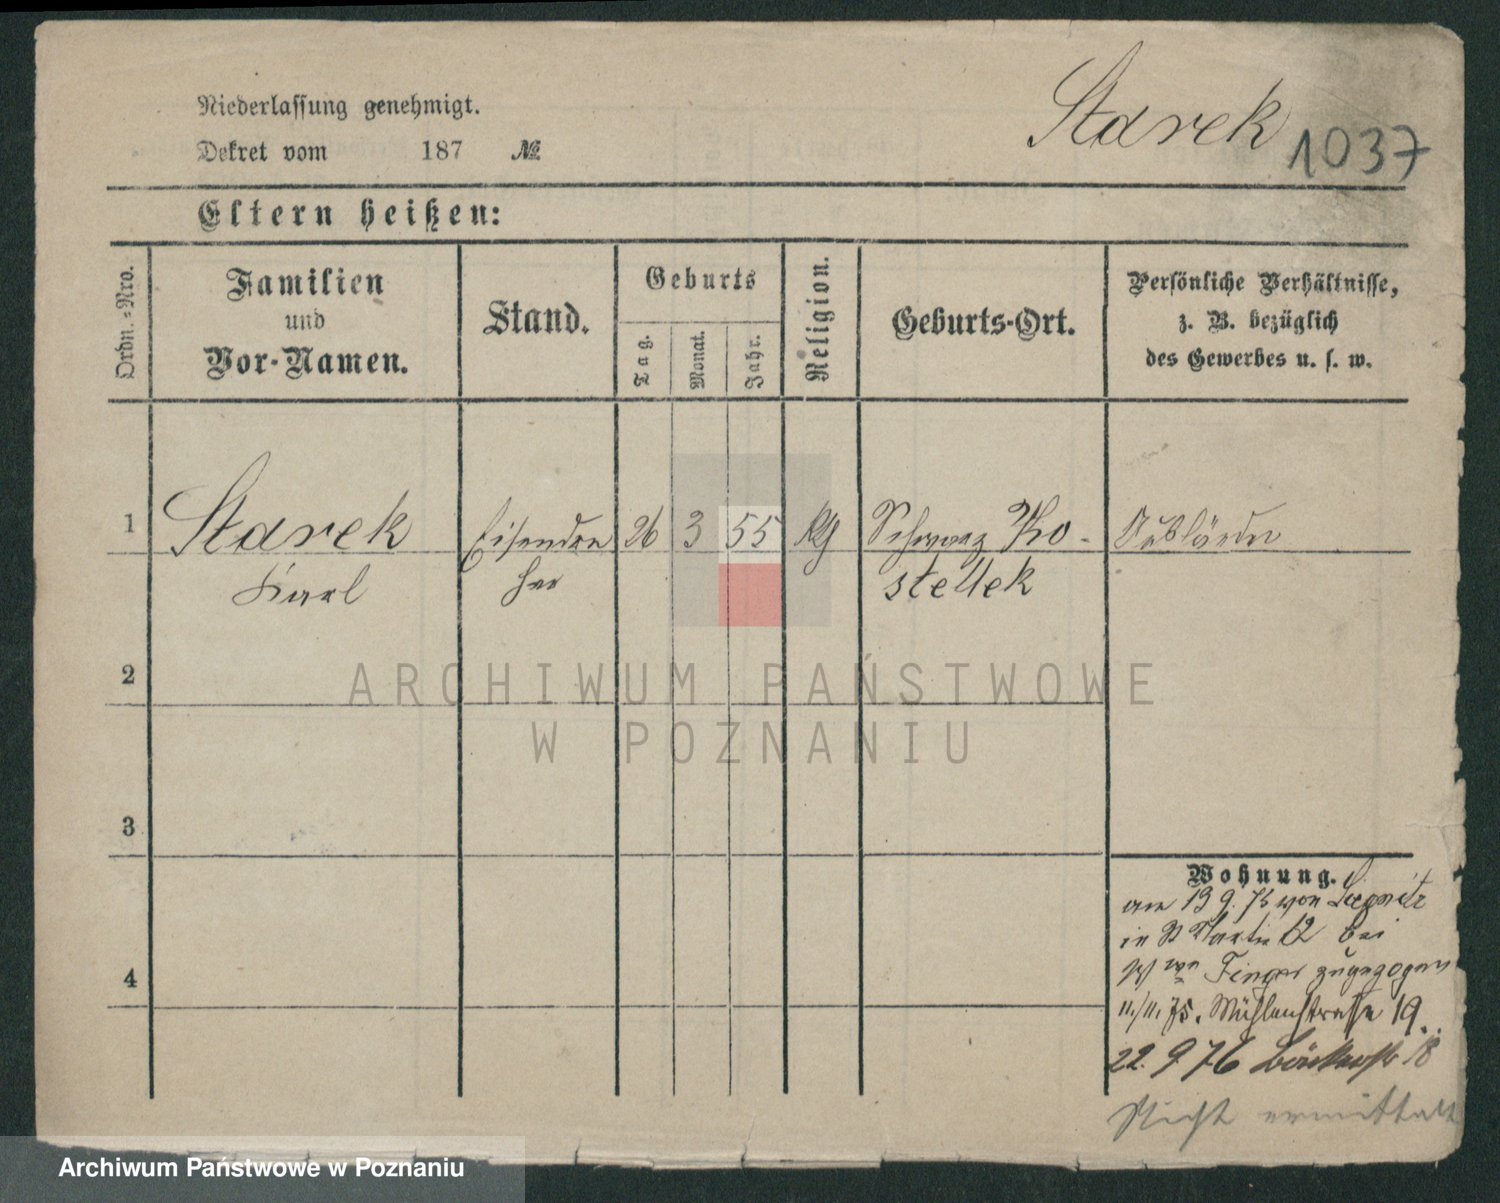 Starek
1037
Niederlassung genehmigt.
Dekret vom 187 №
Eltern heißen:
Ordn.=Nro.
Familien
und
Vor-Namen.
Stand.
Geburts
Tag.
Monat.
Jahr.
Religion.
Geburts-Ort.
Persönliche Verhältnisse,
z. B. bezüglich
des Gewerbes u. s. w.
1
Starek
Karl
Eisendre
her
26
3
55
Schwarz Ko-
stellek
Ausländer
2
3
4
Wohnung.
am 19 9. 75 von Liegnitz
in St Martin 62 bei
Finger zugezogen
11./11. 75. Mühlenstrasse 19.
22. 9 76 18
Nicht ermittelt
ARCHIWUM PAŃSTWOWE
W POZNANIU
Archiwum Państwowe w Poznaniu